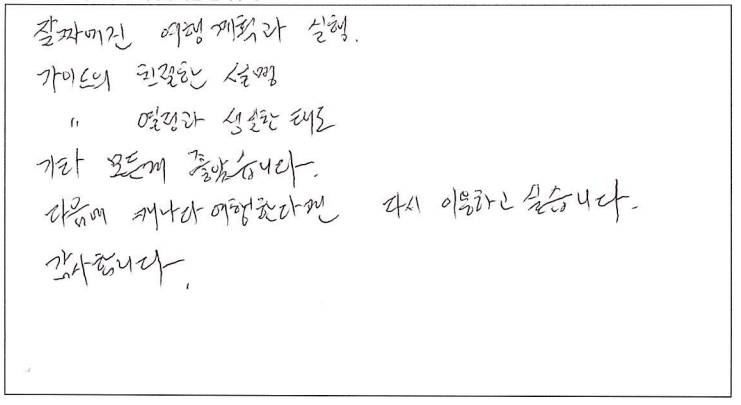 잘짜여진 여행계획과 실행.
가이드의 친절한 설명
" 열정과 성실한 태도
기타 모든게 좋았습니다.
다음에 캐나다 여행한다면 다시 이용하고 싶습니다.
감사합니다.